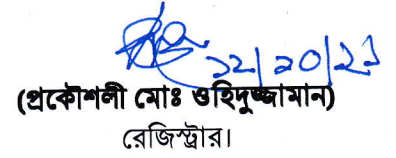 ১২/১০/২১
(প্রকৌশলী মোঃ ওহিদুজ্জামান)
রেজিস্ট্রার।